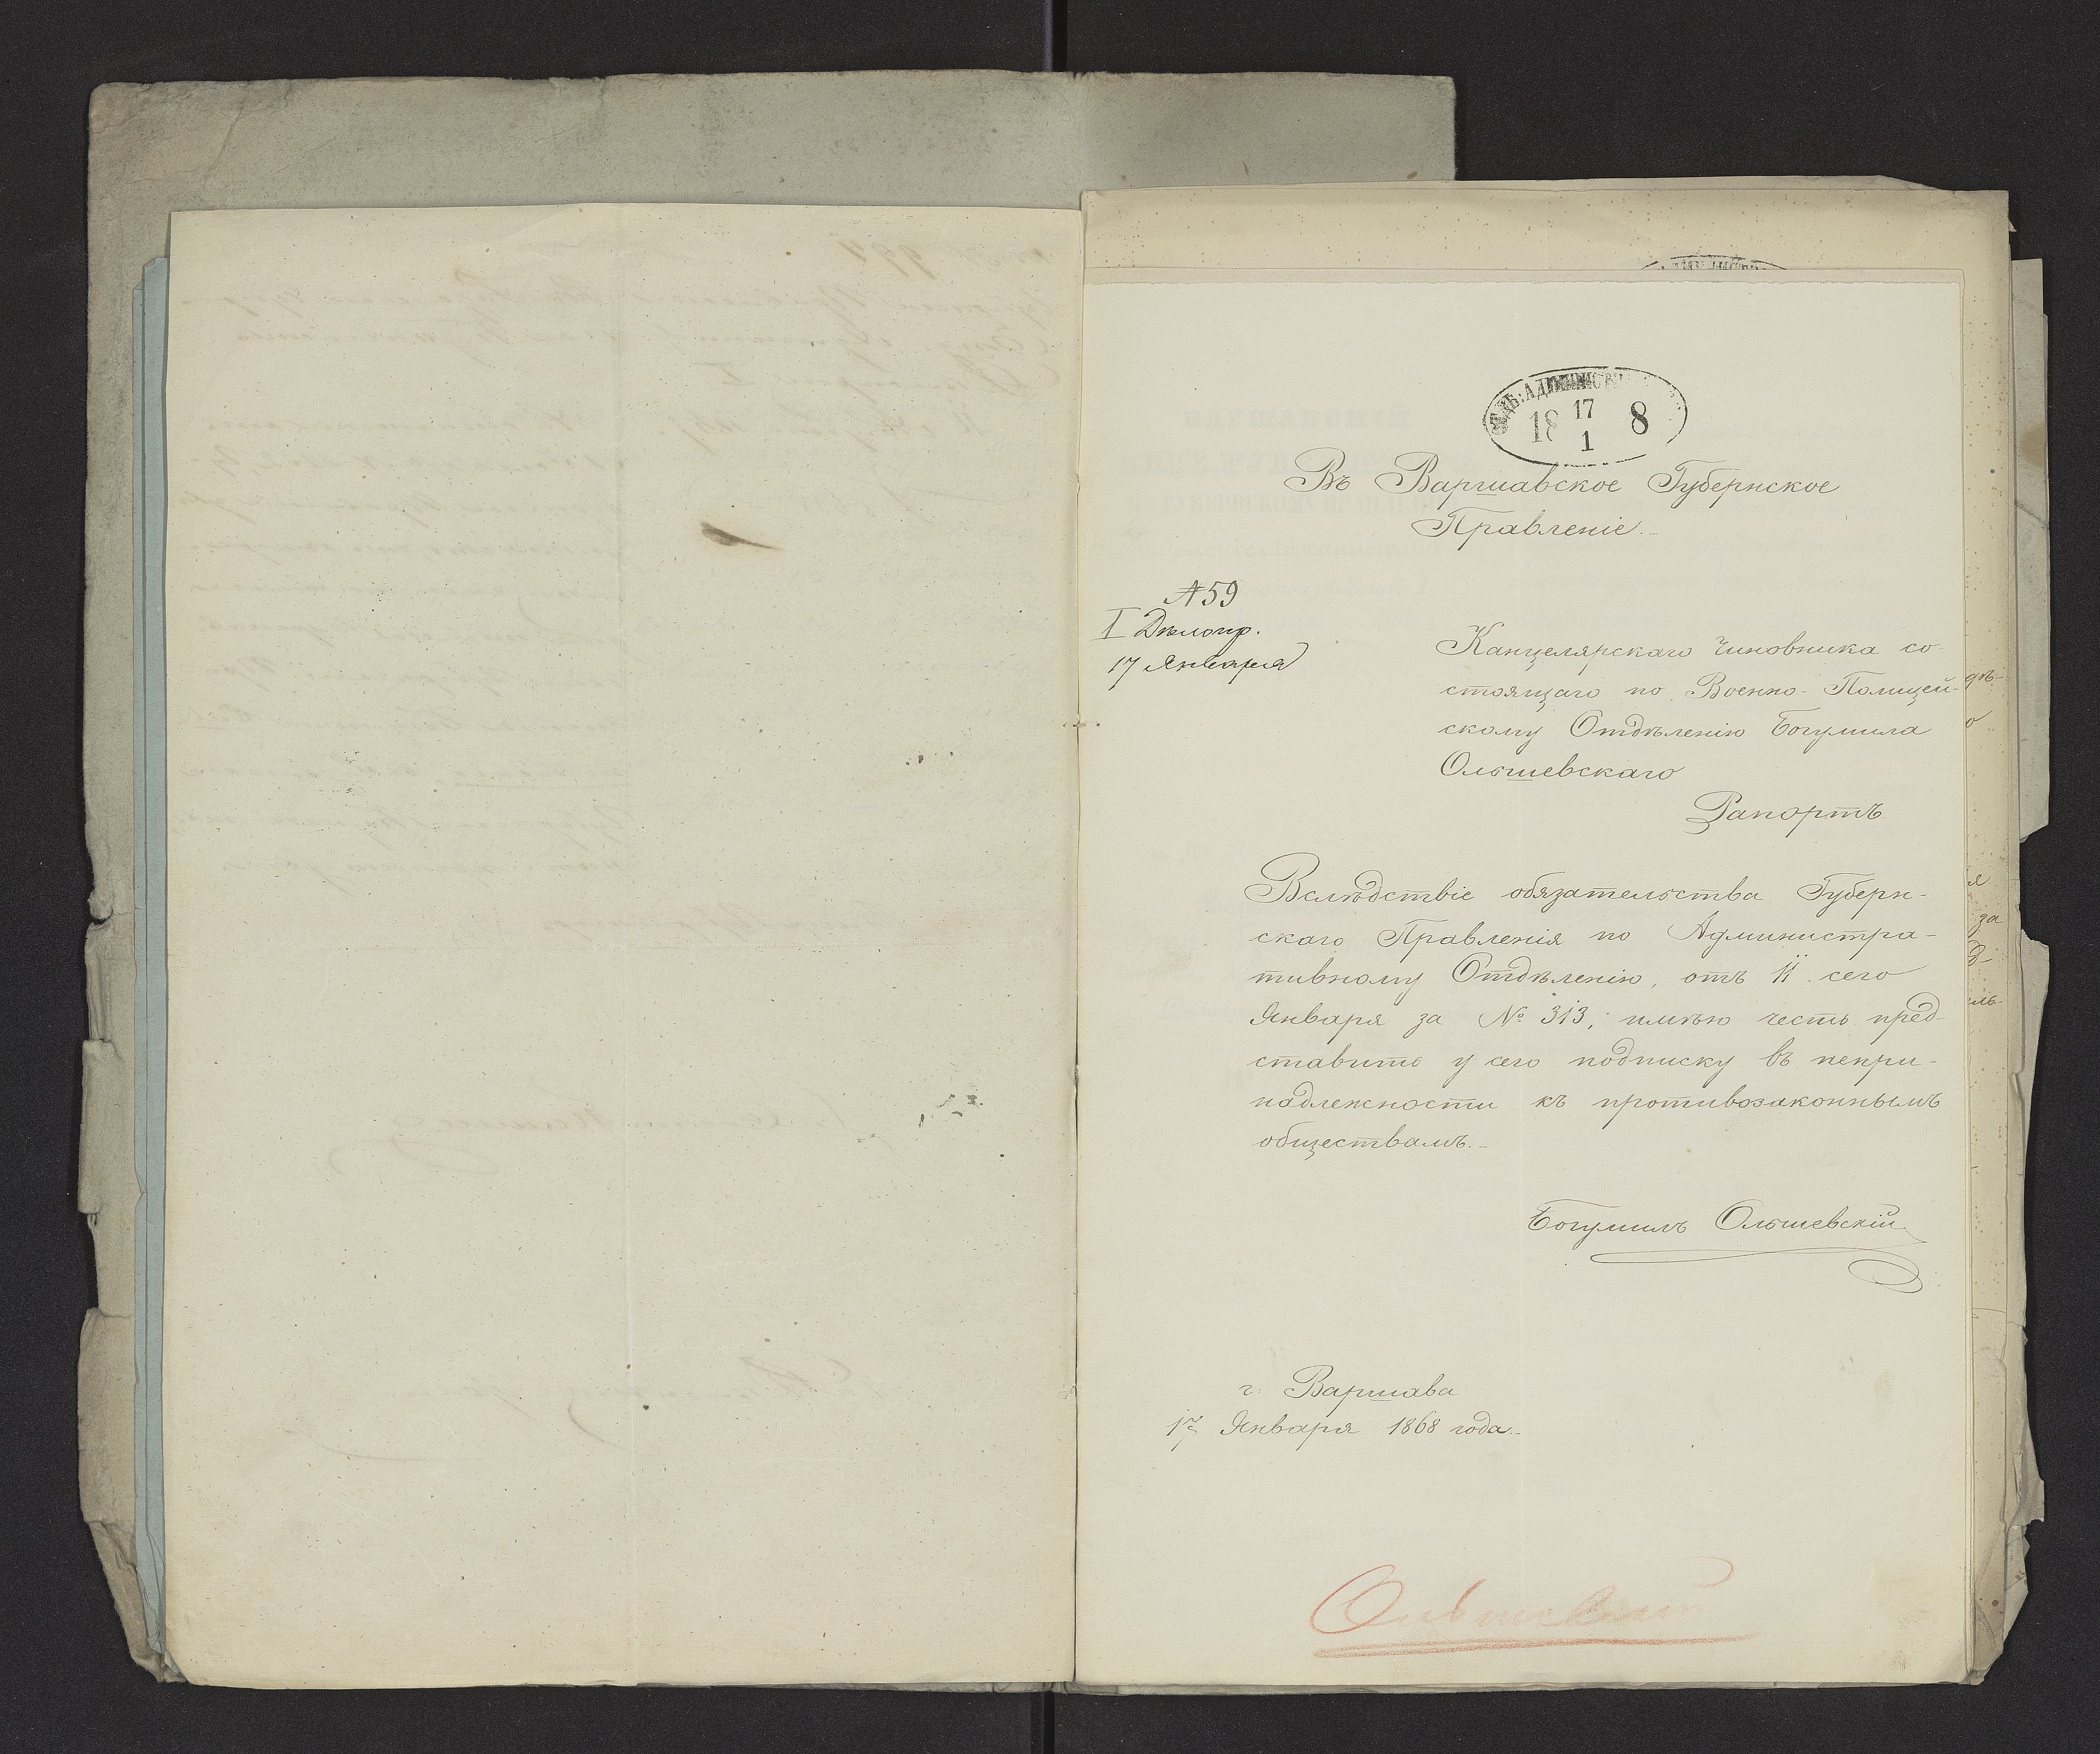 ОТДѢ: АДМИНИСТ
17
18 8
1
Въ Варшавское Губернское
Правленіе.-
А 59
I Дѣлопр.
17 Января
Канцелярскаго чиновника со-
стоящаго по Военно-Полицей-
скому Отдѣленію Богумила
Ольшевскаго
Рапортъ
Вслѣдствіе обязательства Губерн-
скаго Правленія по Администра-
тивному Отдѣленію, отъ 11 сего
Января за № 313, имѣю честь пред-
ставить у сего подписку въ непри-
надлежности къ противозаконнымъ
обществамъ.-
Богумилъ Ольшевскій
г. Варшава
17 Января 1868 года.-
Ольшевскій